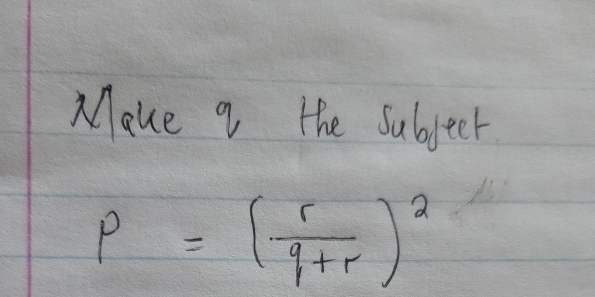 Make q the subject.
P = (r / (q + r))^2